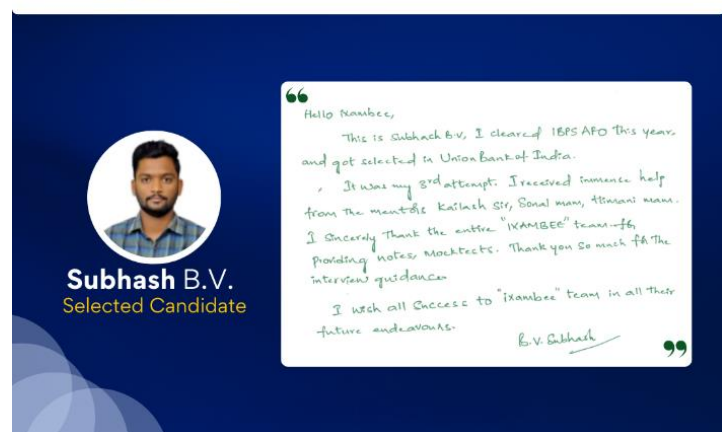 Subhash B.V.
Selected Candidate
Hello Ixambee,
This is Subhash B.V, I cleared IBPS AFO this year,
and got selected in Union Bank of India.
, It was my 3rd attempt. I received immense help
from the mentors Kailash Sir, Sonal mam, Himani mam.
I Sincerely Thank the entire "IXAMBEE" team for
Providing notes, Mocktests. Thank you so much for the
interview guidance
I wish all Success to "ixambee" team in all their
future endeavours.
B.V. Subhash